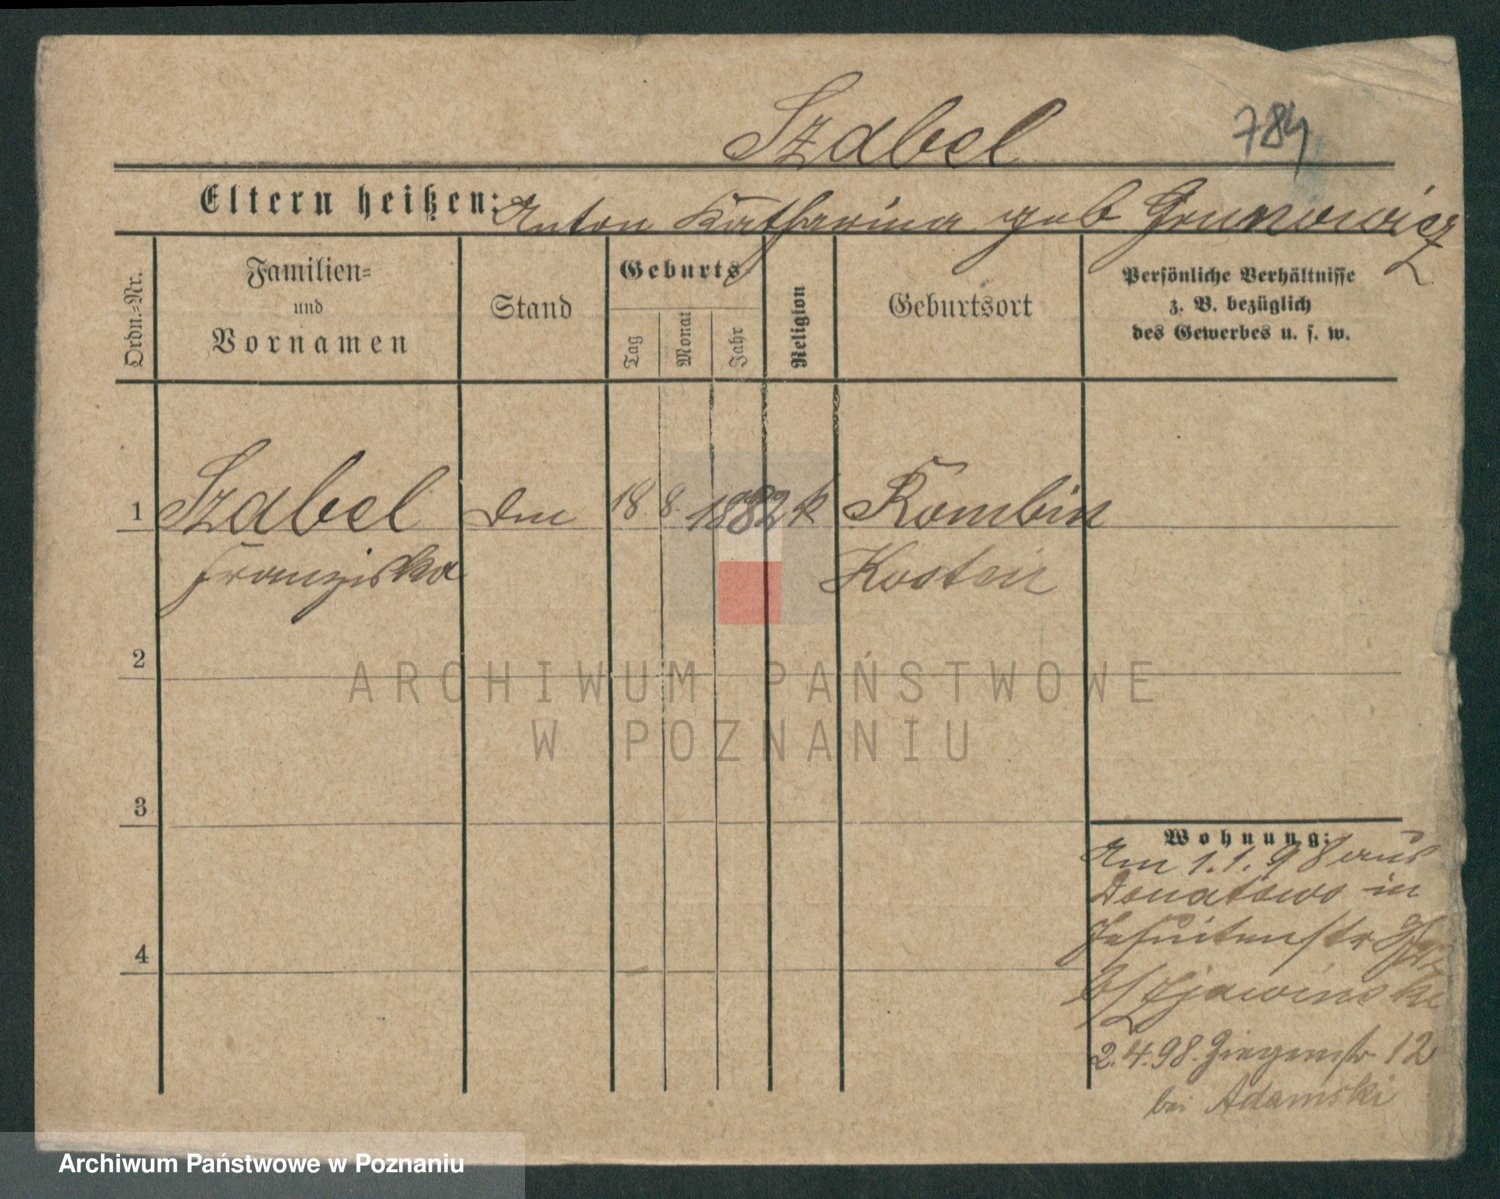 Szabel
784
Eltern heißen: Anton Katharina geb Grunowicz
Ordn.=Nr.
Familien=
und
Vornamen
Stand
Geburts=
Tag
Monat
Jahr
Religion
Geburtsort
Persönliche Verhältnisse
z. B. bezüglich
des Gewerbes u. s. w.
1 Szabel 18 8. 1882 k Rombin
Franziska Kosten
2
ARCHIWUM PAŃSTWOWE
W POZNANIU
3
Wohnung:
Am 1.1.98 aus
Donatowo in
Jesuitenstr
b/
2.4.98. Ziegenstr 12
bei Adamski
4
Archiwum Państwowe w Poznaniu